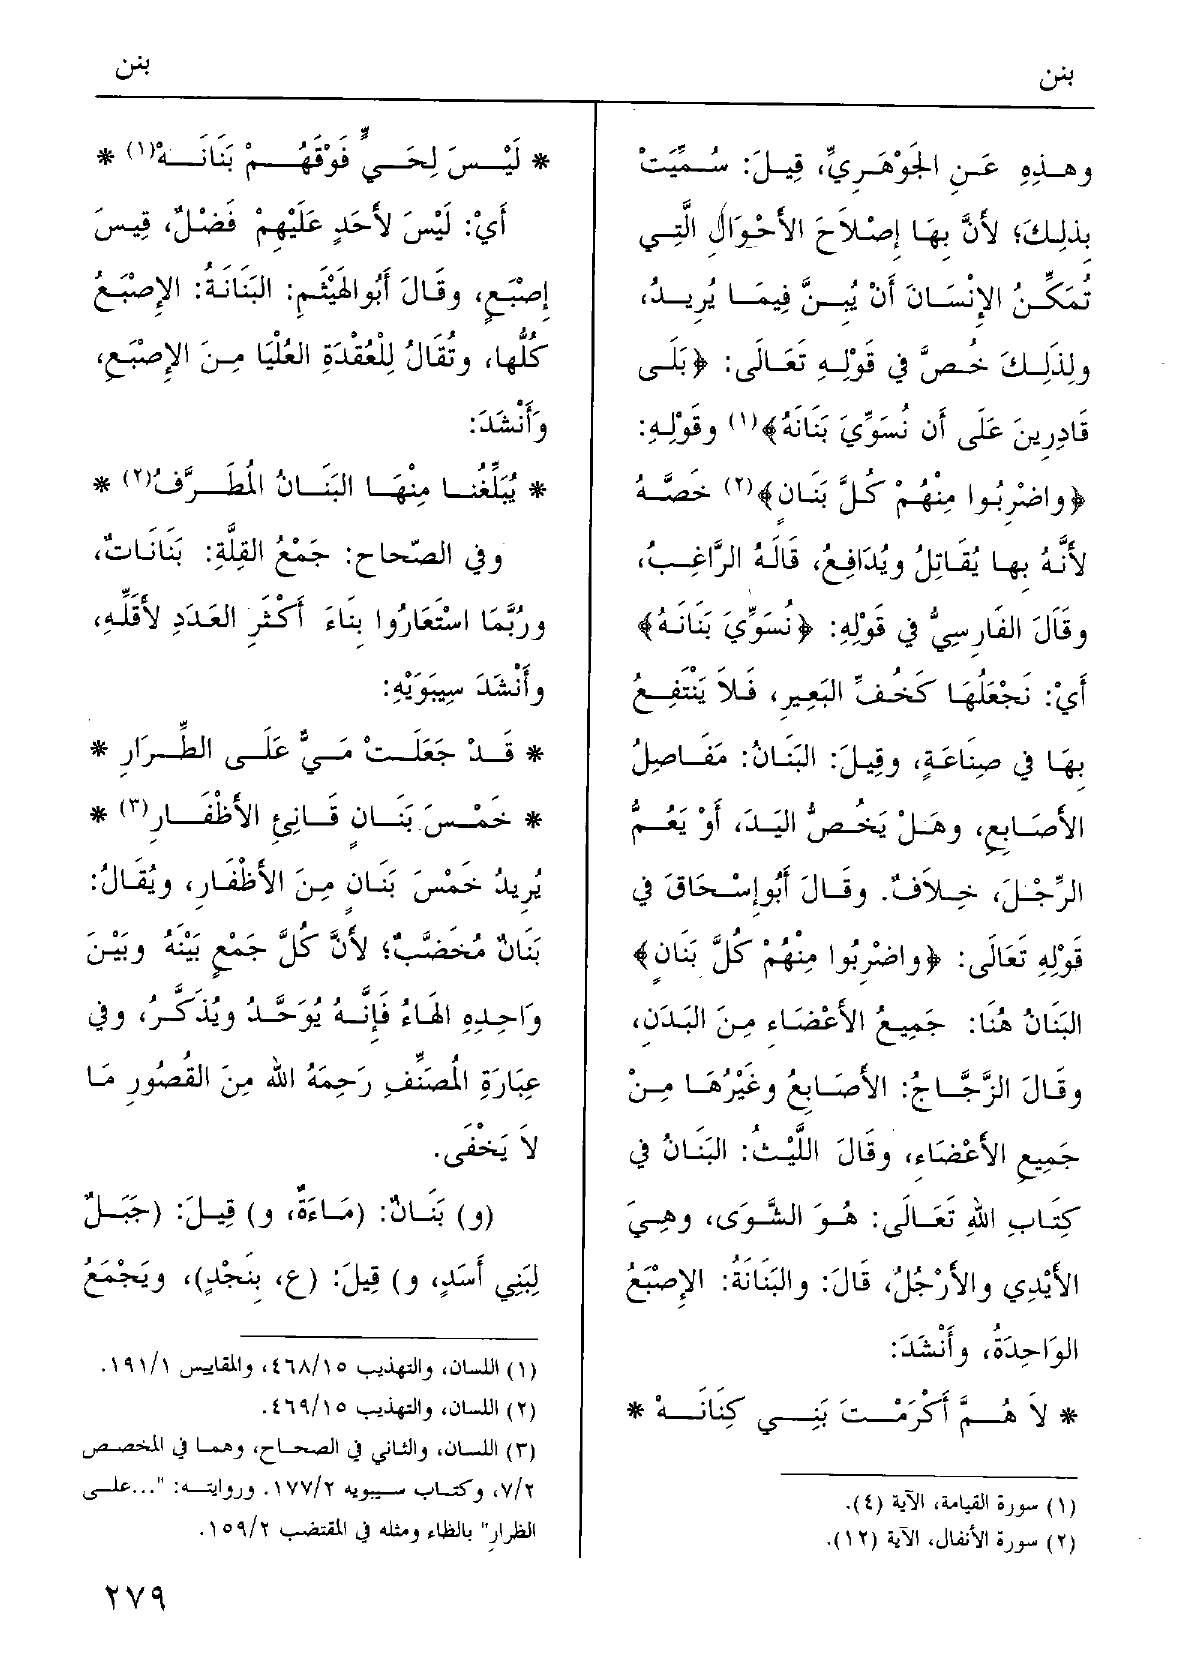 بنن
بنن
وهذِهِ عَنِ الجَوْهَرِيِّ، قِيلَ: سُمِّيَتْ
بِذلِكَ؛ لأَنَّ بِهَا إِصْلاَحَ الأَحْوَالِ الَّتِي
تُمَكِّنُ الإِنْسَانَ أَنْ يُبِنَّ فِيمَا يُرِيدُ،
ولِذَلِكَ خُصَّ في قَوْلِهِ تَعَالَى: ﴿بَلَى
قَادِرِينَ عَلَى أَن نُسَوِّيَ بَنَانَهُ﴾(١) وقَوْلِهِ:
﴿واضْرِبُوا مِنْهُمْ كُلَّ بَنَانٍ﴾(٢) خَصَّهُ
لأَنَّهُ بِها يُقَاتِلُ ويُدَافِعُ، قَالَهُ الرَّاغِبُ،
وقَالَ الفَارِسِيُّ في قَوْلِهِ: ﴿نُسَوِّيَ بَنَانَهُ﴾
أَيْ: نَجْعَلُهَا كَخُفِّ البَعِيرِ، فَلاَ يَنْتَفِعُ
بِهَا في صِنَاعَةٍ، وقِيلَ: البَنَانُ: مَفَاصِلُ
الأَصَابِعِ، وهَلْ يَخُصُّ اليَدَ، أَوْ يَعُمُّ
الرِّجْلَ، خِلاَفٌ. وقَالَ أَبُوإِسْحَاقَ في
قَوْلِهِ تَعَالَى: ﴿واضْرِبُوا مِنْهُمْ كُلَّ بَنَانٍ﴾
البَنَانُ هُنَا: جَمِيعُ الأَعْضَاءِ مِنَ البَدَنِ،
وقَالَ الزَّجَّاجُ: الأَصَابِعُ وغَيْرُهَا مِنْ
جَمِيعِ الأَعْضَاءِ، وقَالَ اللَّيْثُ: البَنَانُ في
كِتَابِ اللهِ تَعَالَى: هُوَ الشَّوَى، وهِيَ
الأَيْدِي والأَرْجُلُ، قَالَ: والبَنَانَةُ: الإِصْبَعُ
الوَاحِدَةُ، وأَنْشَدَ:
* لاَ هُمَّ أَكْرَمْتَ بَنِي كِنَانَهْ *
(١) سورة القيامة، الآية (٤).
(٢) سورة الأنفال، الآية (١٢).
* لَيْسَ لِحَيٍّ فَوْقَهُمْ بَنَانَهْ(١) *
أَيْ: لَيْسَ لأَحَدٍ عَلَيْهِمْ فَضْلٌ، قِيسَ
إِصْبَعٍ، وقَالَ أَبُوالهَيْثَمِ: البَنَانَةُ: الإِصْبَعُ
كُلُّها، وتُقَالُ لِلْعُقْدَةِ العُلْيَا مِنَ الإِصْبَعِ،
وَأَنْشَدَ:
* يُبَلِّغُنَا مِنْهَا البَنَانُ المُطَرَّفُ(٢) *
وفي الصّحاح: جَمْعُ القِلَّةِ: بَنَانَاتٌ،
ورُبَّمَا اسْتَعَارُوا بِنَاءَ أَكْثَرِ العَدَدِ لأَقَلِّهِ،
وأَنْشَدَ سِيبَوَيْهِ:
* قَدْ جَعَلَتْ مَيٌّ عَلَى الطِّرَارِ *
* خَمْسَ بَنَانٍ قَانِئِ الأَظْفَارِ(٣) *
يُرِيدُ خَمْسَ بَنَانٍ مِنَ الأَظْفَارِ، ويُقَالُ:
بَنَانٌ مُخَضَّبٌ؛ لأَنَّ كُلَّ جَمْعٍ بَيْنَهُ وبَيْنَ
وَاحِدِهِ الهَاءُ فَإِنَّهُ يُوَحَّدُ ويُذَكَّرُ، وفي
عِبَارَةِ المُصَنِّفِ رَحِمَهُ اللهُ مِنَ القُصُورِ مَا
لاَ يَخْفَى.
(و) بَنَانٌ: (مَاءَةٌ، و) قِيلَ: (جَبَلٌ
لِبَنِي أَسَدٍ، و) قِيلَ: (ع، بِنَجْدٍ)، ويَجْمَعُ
(١) اللسان، والتهذيب ٤٦٨/١٥، والمقايس ١٩١/١.
(٢) اللسان، والتهذيب ٤٦٩/١٥.
(٣) اللسان، والثاني في الصحاح، وهما في المخصص
٧/٢، وكتاب سيبويه ١٧٧/٢. وروايته: "...على
الظرار" بالظاء ومثله في المقتضب ١٥٩/٢.
٢٧٩